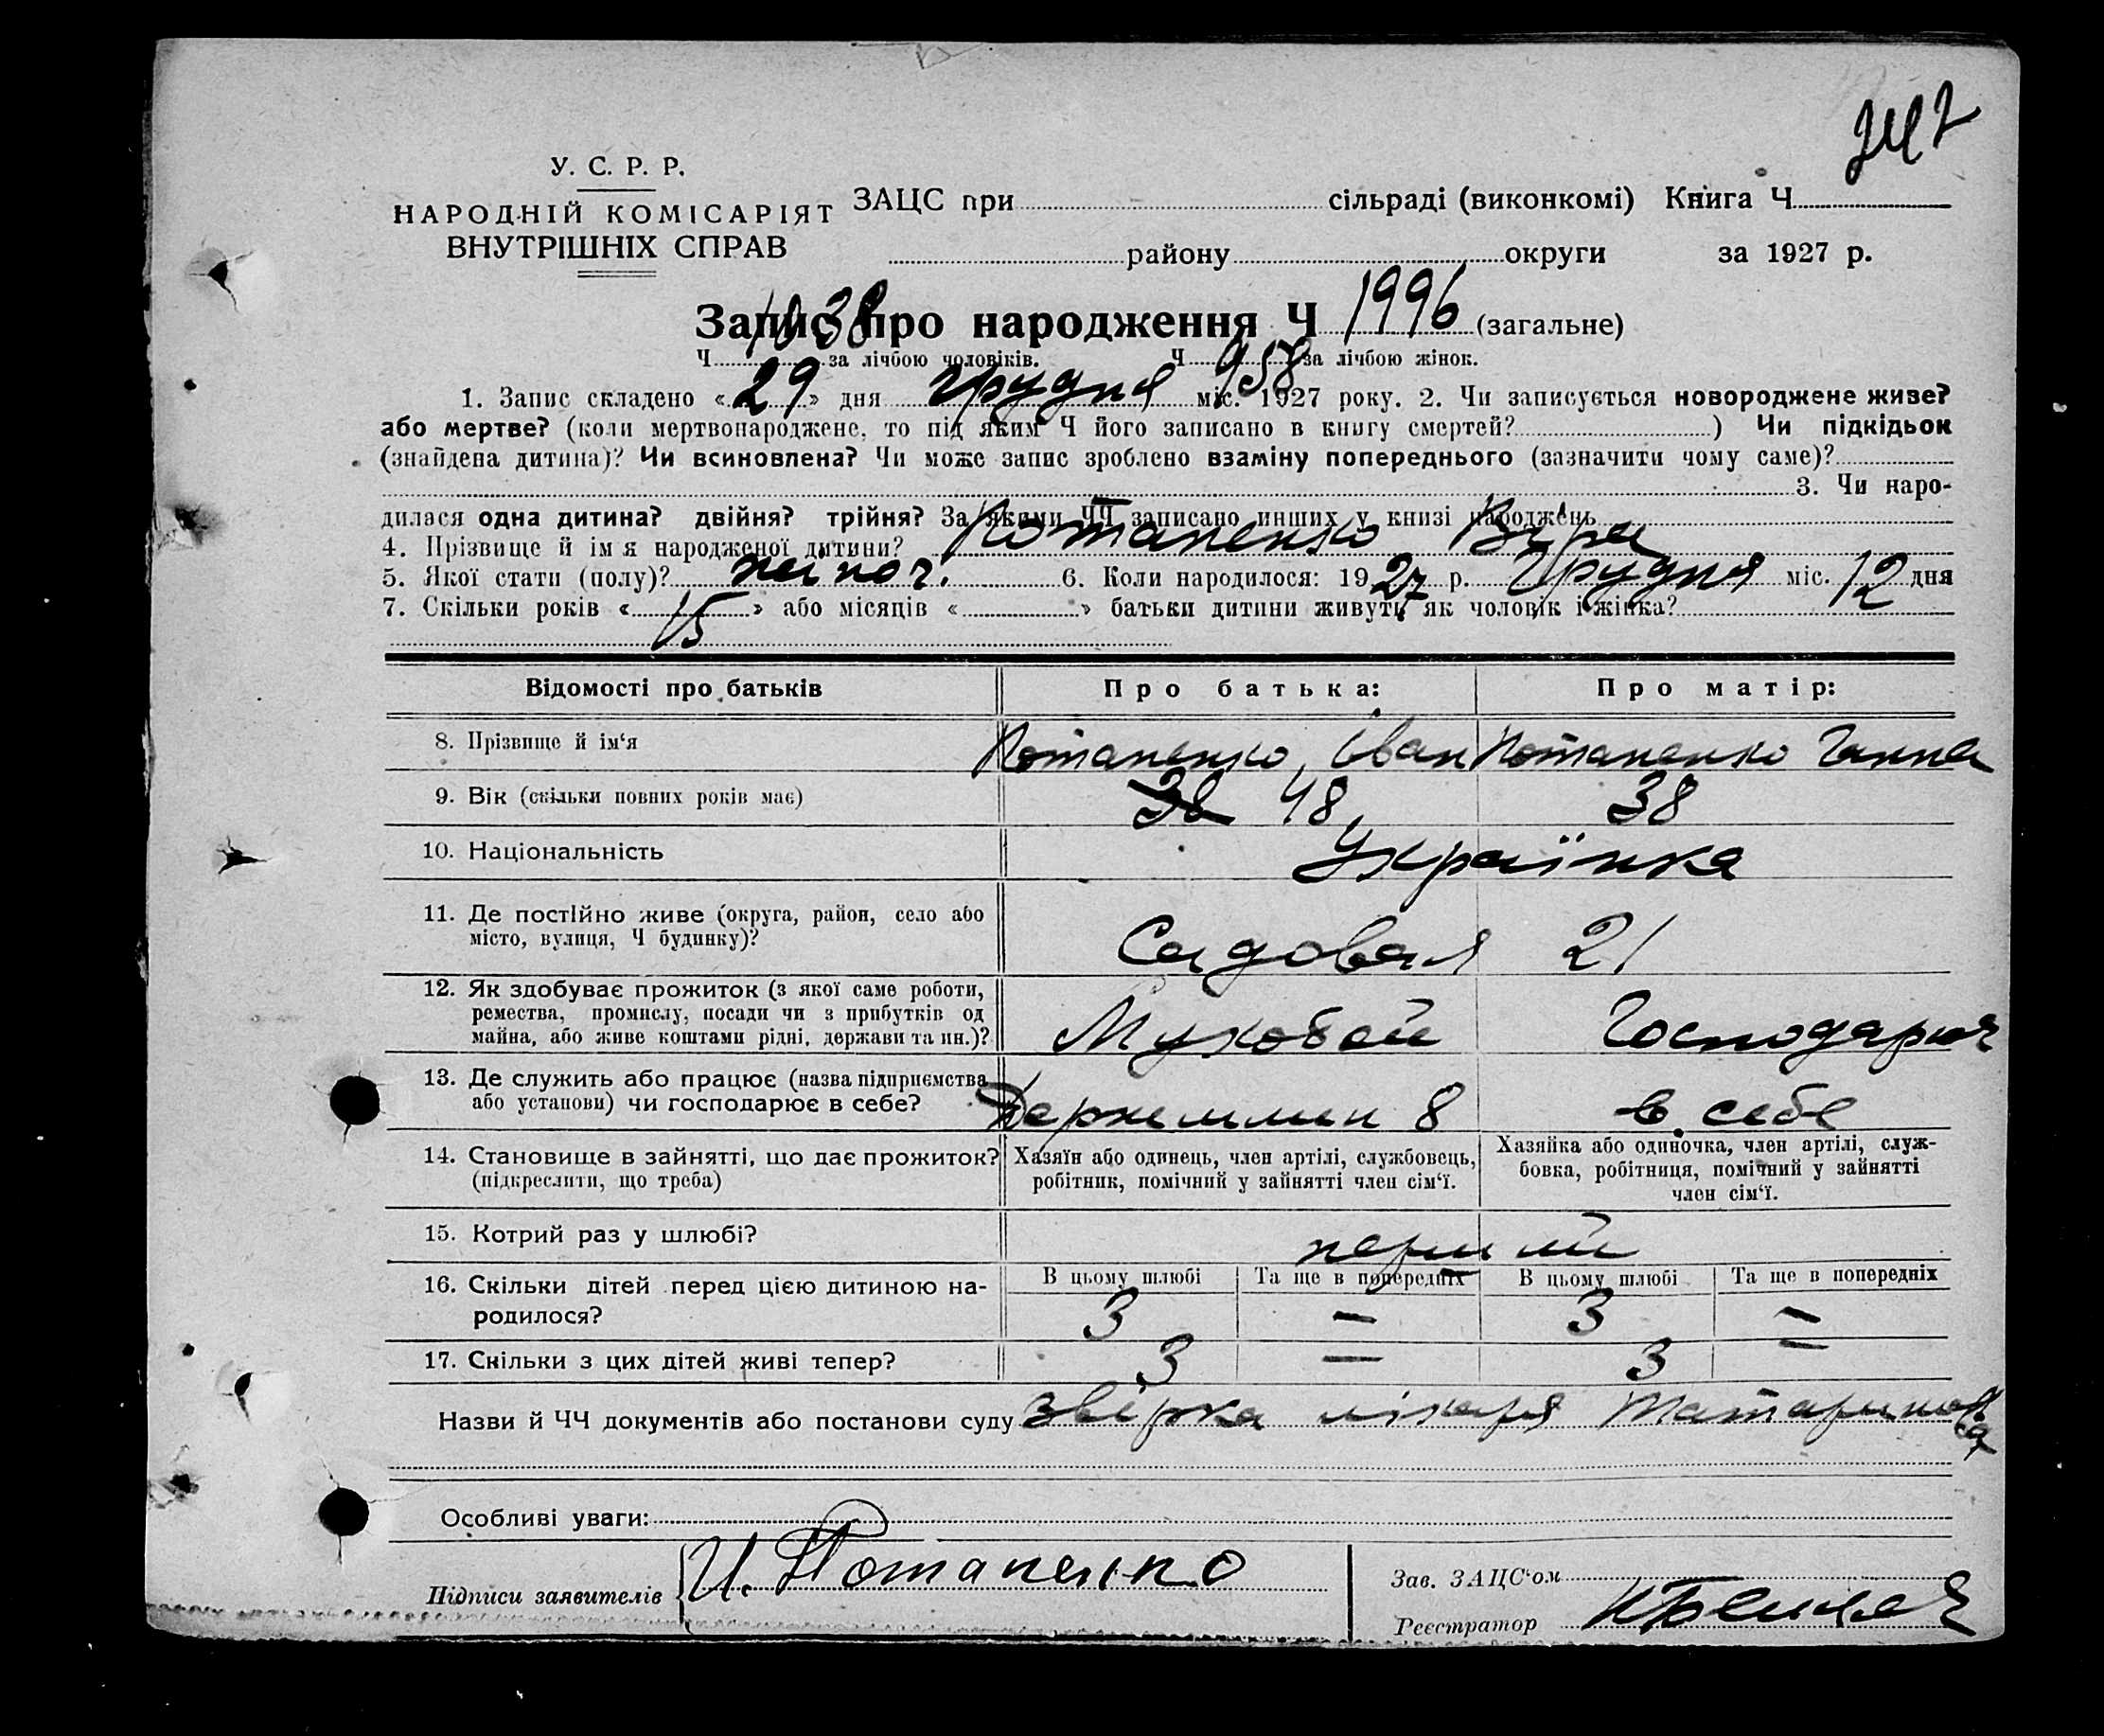 247
У. С. Р. Р.
НАРОДНІЙ КОМІСАРІЯТ
ВНУТРІШНІХ СПРАВ
ЗАЦС при сільраді (виконкомі) Книга Ч.
району округи за 1927 р.
Запис про народження Ч 1996 (загальне)
Ч 1038 за лічбою чоловіків. Ч 958 за лічбою жінок.
1. Запис складено «29» дня грудня міс. 1927 року. 2. Чи записується новороджене живе?
або мертве? (коли мертвонароджене, то під яким Ч його записано в книгу смертей? ) Чи підкідьок
(знайдена дитина)? Чи всиновлена? Чи може запис зроблено взаміну попереднього (зазначити чому саме)?
3. Чи наро-
дилася одна дитина? двійня? трійня? За якими ЧЧ записано инших у книзі народжень
4. Прізвище й ім я народженої дитини? Потапенко Віра
5. Якої стати (полу)? жіноч. 6. Коли народилося: 1927 р. Грудня міс. 12 дня
7. Скільки років «15» або місяців « » батьки дитини живуть як чоловік і жінка?
Відомості про батьків Про батька: Про матір:
8. Прізвище й ім‘я Потапенко, Іван Потапенко Ганна
9. Вік (скільки повних років має) 38 48 38
10. Національність Українка
11. Де постійно живе (округа, район, село або
місто, вулиця, Ч будинку)? Садовая 21
12. Як здобуває прожиток (з якої саме роботи,
ремества, промислу, посади чи з прибутків од
майна, або живе коштами рідні, держави та ин.)? Господарюч
13. Де служить або працює (назва підприємства
або установи) чи господарює в себе? Держмлин 8 в себе
14. Становище в зайнятті, що дає прожиток?
(підкреслити, що треба)
Хазяїн або одинець, член артілі, службовець,
робітник, помічний у зайнятті член сім‘ї.
Хазяйка або одиночка, член артілі, служ-
бовка, робітниця, помічний у зайнятті
член сім‘ї.
15. Котрий раз у шлюбі? перший
16. Скільки дітей перед цією дитиною на-
родилося?
В цьому шлюбі Та ще в попередніх В цьому шлюбі Та ще в попередніх
3 — 3 —
17. Скільки з цих дітей живі тепер? 3 — 3 —
Назви й ЧЧ документів або постанови суду звірка лікаря Татаринова
Особливі уваги:
Підписи заявителів И. Потапенко
Зав. ЗАЦС‘ом
Реєстратор